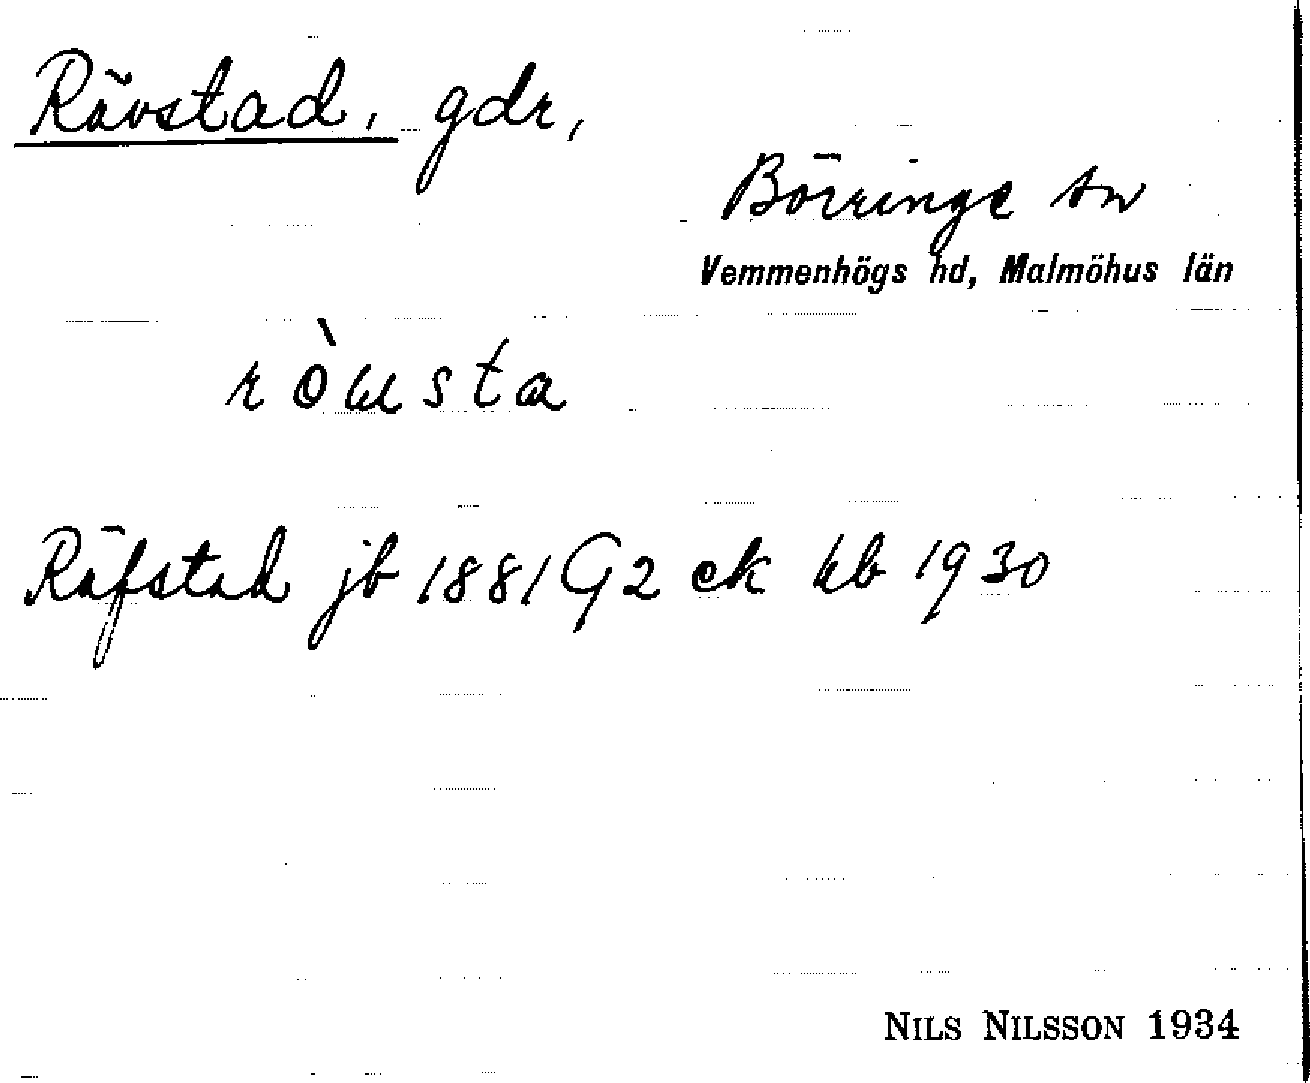 Rävstad, gdr,
Börringe sn
Vemmenhögs hd, Malmöhus län
ròusta
Räfstad jb 1881 G2 ek kb 1930
NILS NILSSON 1934